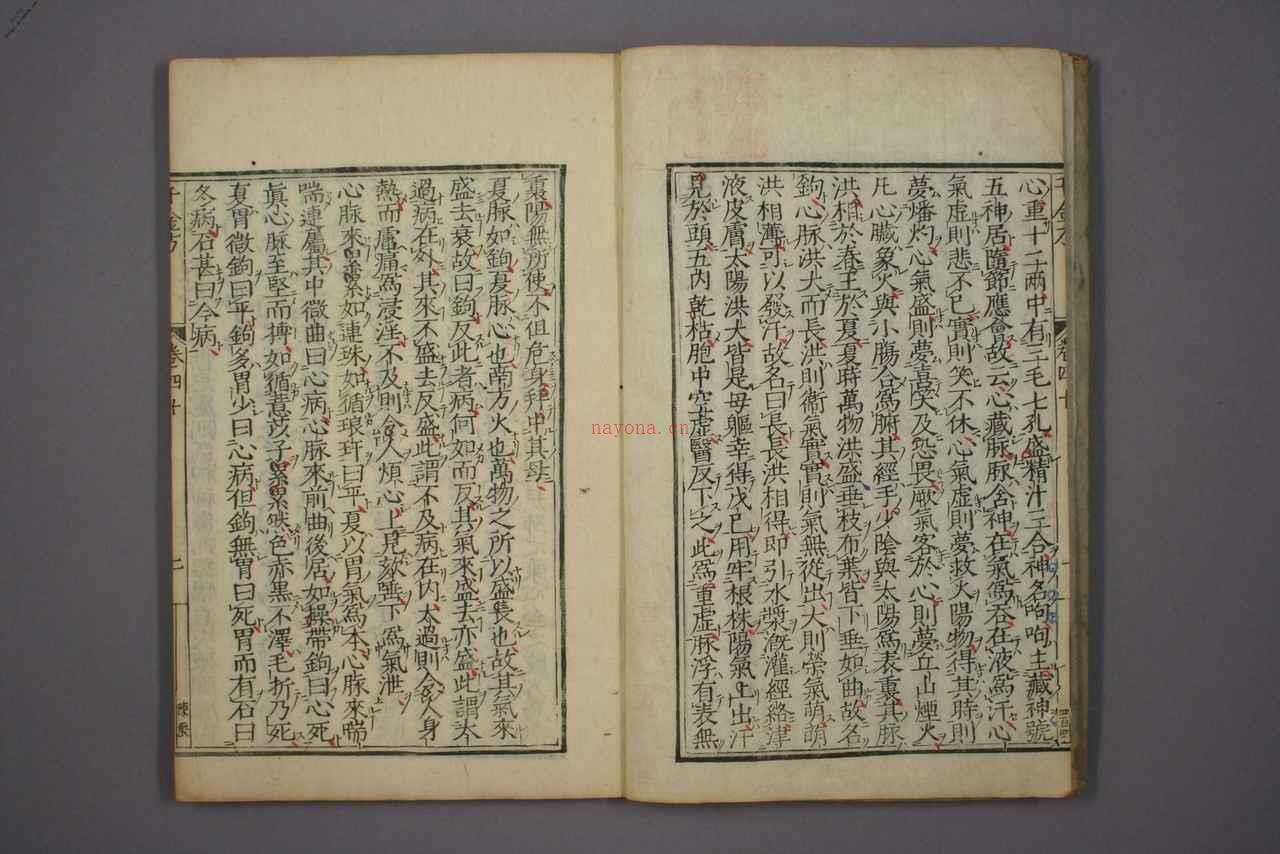 心重十二兩中有三毛七孔盛精汁三合神名呴呴主藏神號
五神居隨節應會故云心藏脉脉舍神在氣爲吞在液爲汗心
氣虛則悲不已實則笑不休心氣虛則夢救火陽物得其時則
夢燔灼心氣盛則夢喜笑及恐畏厥氣客於心則夢丘山煙火
凡心臟象火與小腸合爲腑其經手少陰與太陽爲表裏其脉
洪相於春王於夏夏時萬物洪盛垂枝布葉皆下垂如曲故名
鉤心脉洪大而長洪則衛氣實實則氣無從出大則榮氣萌萌
洪相薄可以發汗故名曰長長洪相得即引水漿漑灌經絡津
液皮膚太陽洪大皆是母軀幸得戊己用牢根株陽氣上出汗
見於頭五内乾枯胞中空虛醫反下之此爲重虛脉浮有表無
裏陽無所使不但危身并中其母
夏脉如鉤夏脉心也南方火也萬物之所以盛長也故其氣來
盛去衰故曰鉤反此者病何如而反其氣來盛去亦盛此謂太
過病在外其來不盛去反盛此謂不及病在内太過則令人身
熱而膚痛爲浸淫不及則令人煩心上見欬唾下爲氣泄
心脉來累累如連珠如循琅玕曰平夏以胃氣爲本心脉來喘
喘連屬其中微曲曰心病心脉來前曲後居如操帶鉤曰心死
眞心脉至堅而摶如循薏苡子累累然色赤黑不澤毛折乃死
夏胃微鉤曰平鉤多胃少曰心病但鉤無胃曰死胃而有石曰
冬病石甚曰今病
卷四十
nayona.cn